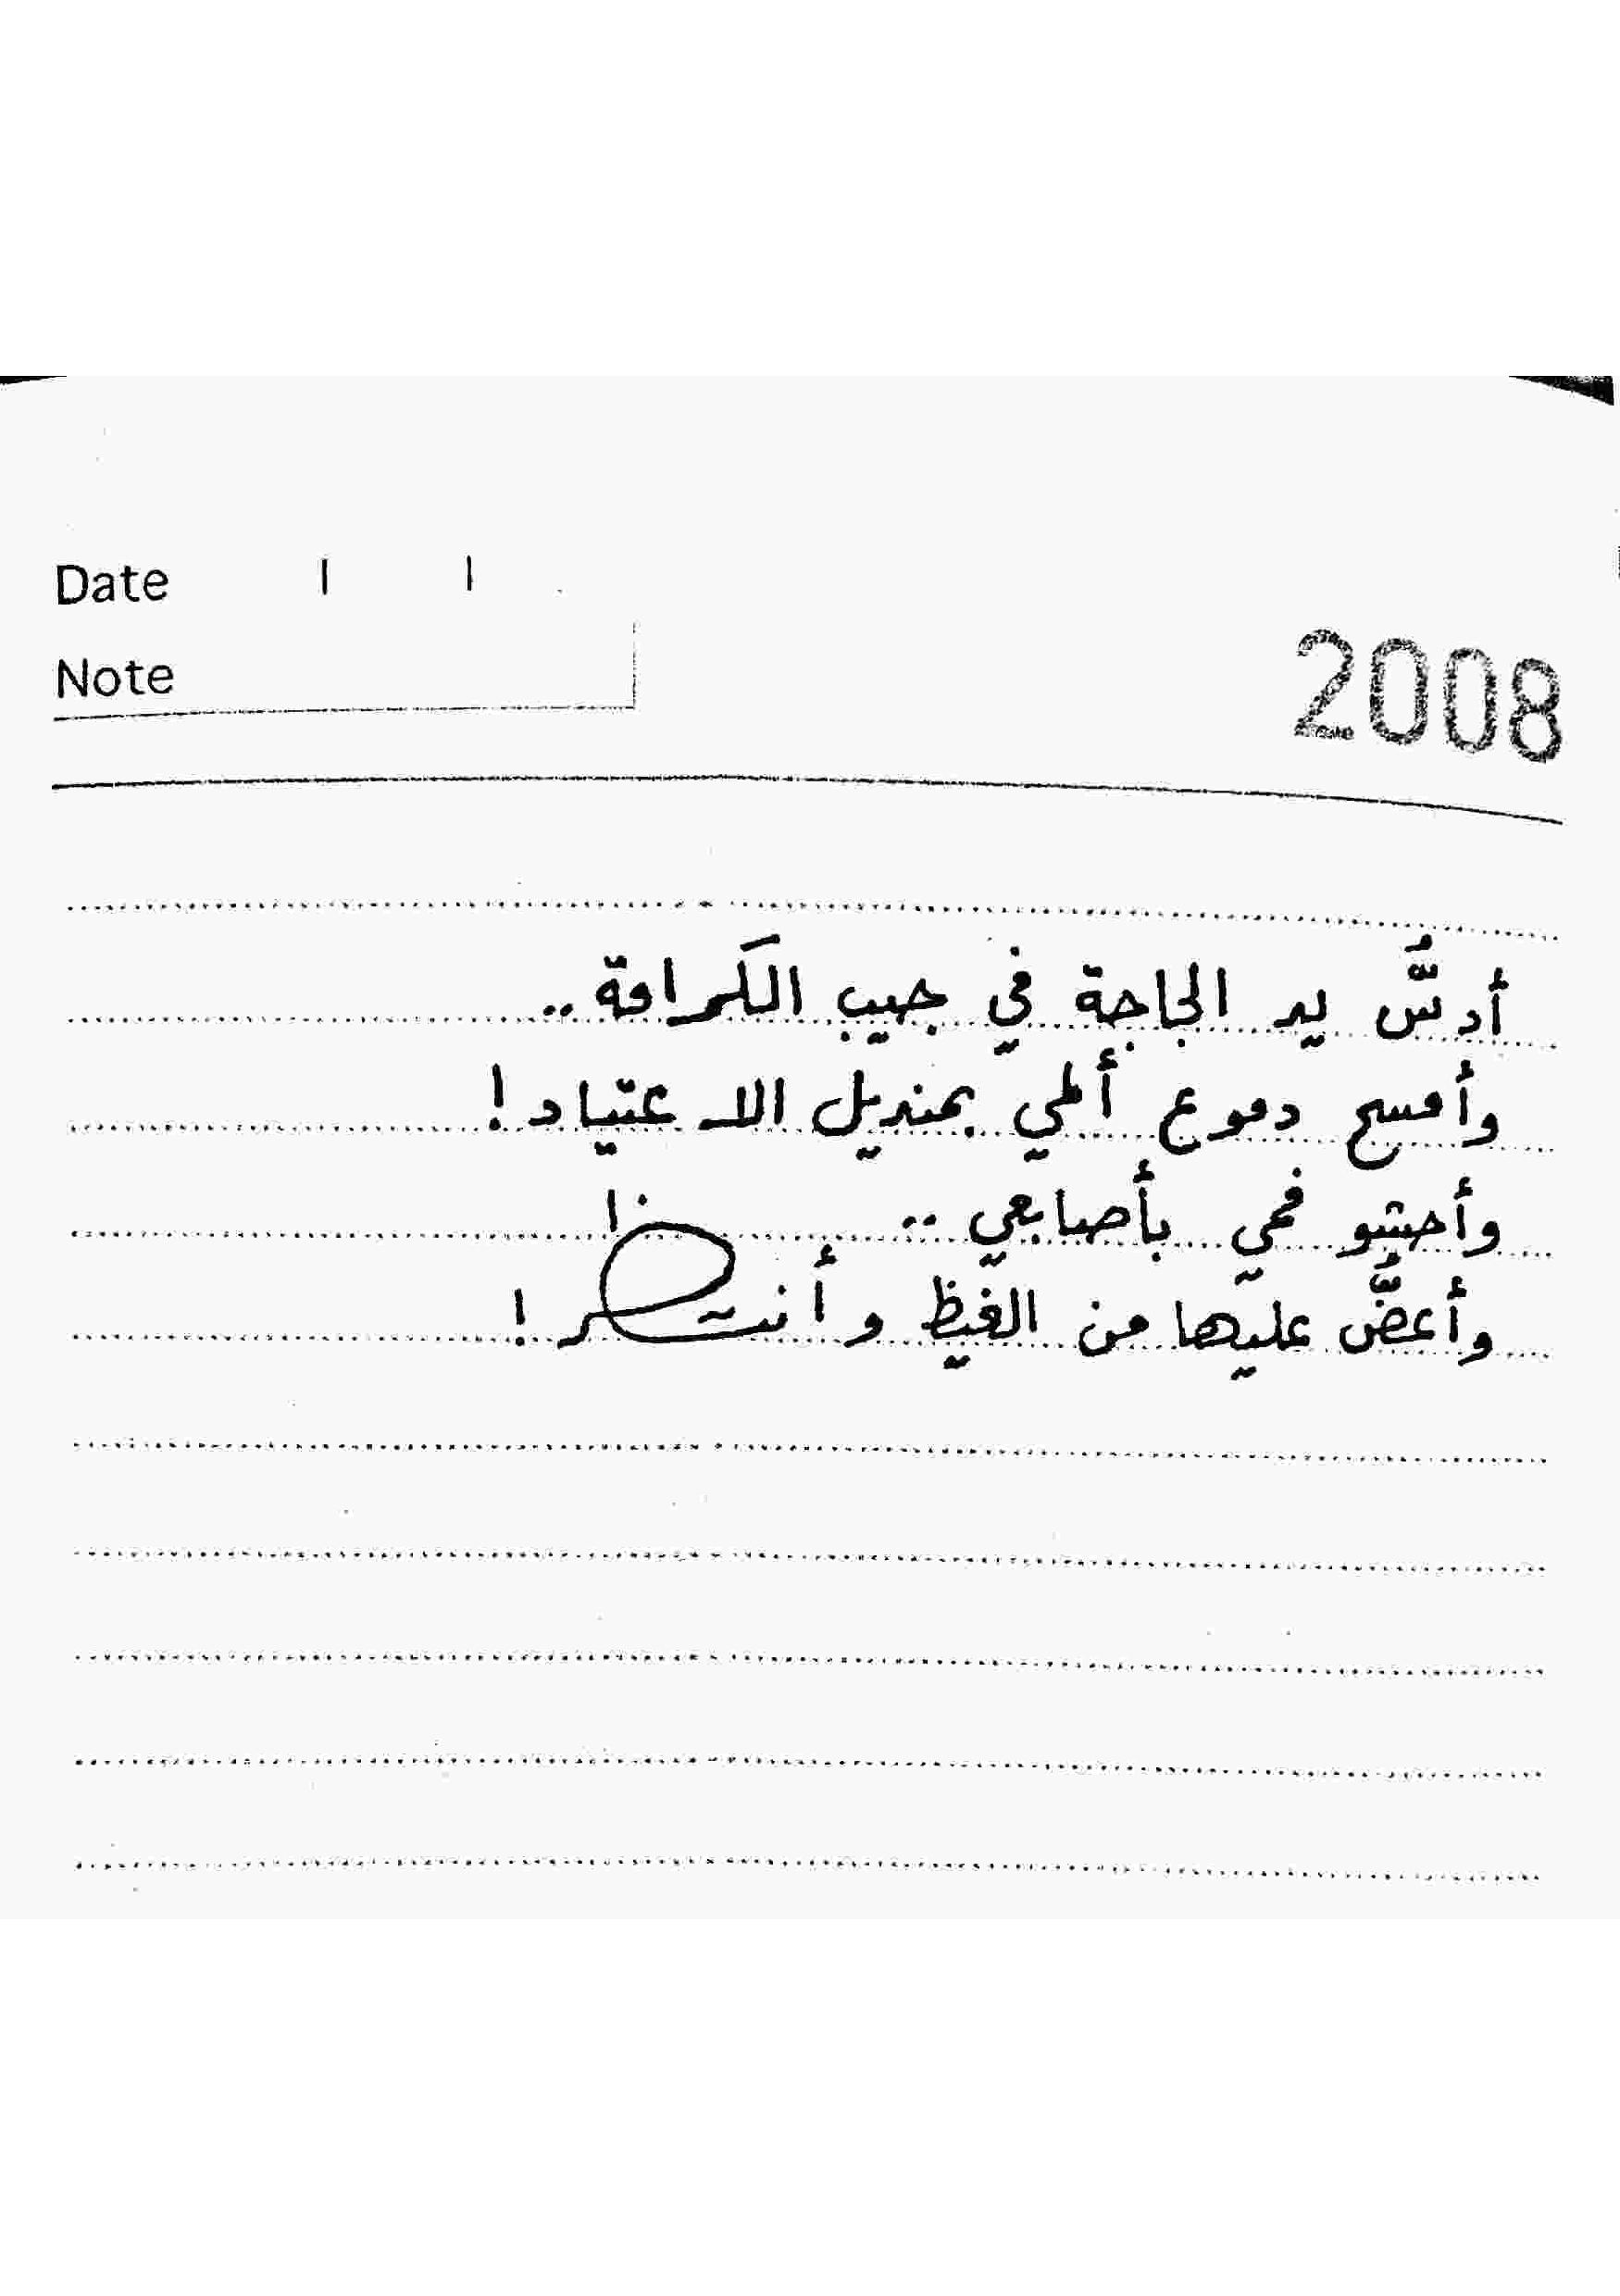 Date / /
Note
2008
أدسُّ يد الحاجة في جيب الكرامة..
وأمسح دموع ألمي بمنديل الاعتياد!
وأحشو فمي بأصابعي ..
وأعضُّ عليها من الغيظ و أنتصر !